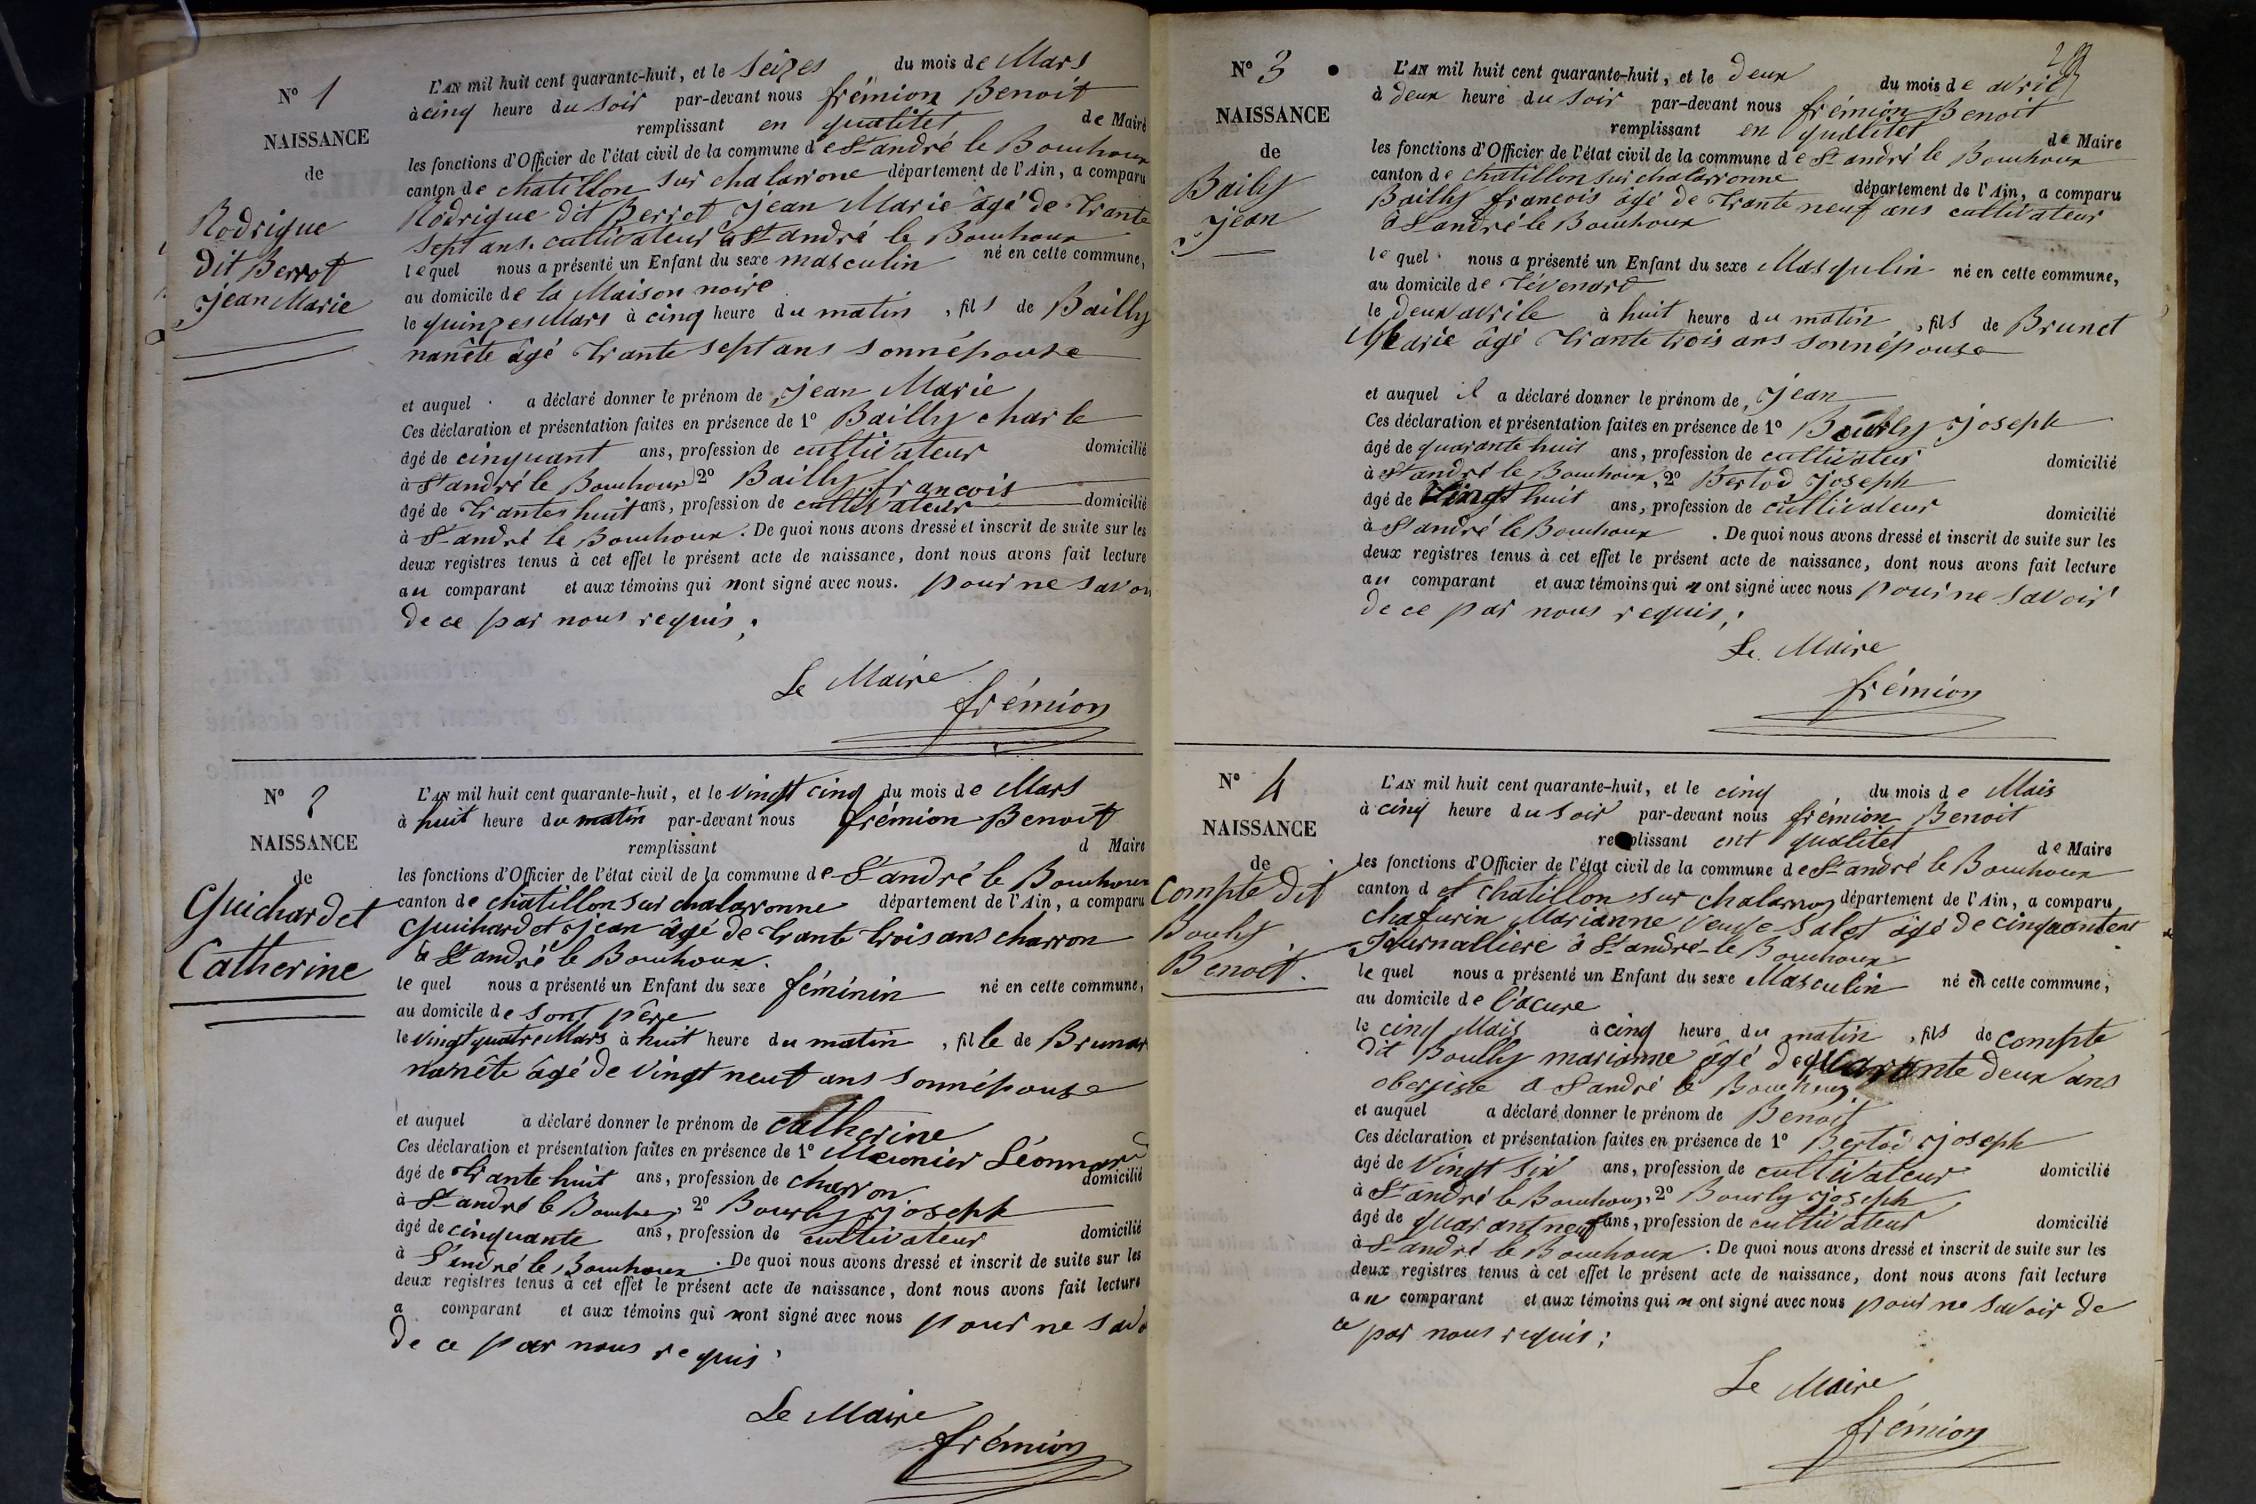 N° 1
NAISSANCE
de
Rodrigue
dit Berrot
jean Marie
L'AN mil huit cent quarante-huit, et le seizes du mois de Mars
à cinq heure du soir par-devant nous frémion Benoit
remplissant en qualitet de Maire
les fonctions d'Officier de l'état civil de la commune de St andré le Bouchoux
canton de chatillon sur chalarrone département de l'Ain, a comparu
Rodrigue dit Berrot jean Marie âgé de trante
sept ans cultivateur a St andré le Bouchoux
lequel nous a présenté un Enfant du sexe masculin né en cette commune,
au domicile de la Maison noire
le quinzes Mars à cinq heure du matin , fils de Bailly
nanête âgé trante sept ans sonnépouse
et auquel a déclaré donner le prénom de jean Marie
Ces déclaration et présentation faites en présence de 1° Bailly charle
âgé de cinquant ans, profession de cultivateur domicilié
à St andré le Bouchoux 2° Bailly francois
âgé de trantes huit ans, profession de cultivateur domicilié
à St andré le Bouchoux. De quoi nous avons dressé et inscrit de suite sur les
deux registres tenus à cet effet le présent acte de naissance, dont nous avons fait lecture
au comparant et aux témoins qui nont signé avec nous. pour ne savoir
de ce par nous requis ;
Le Maire
frémion
N° 2
NAISSANCE
de
Guichardet
Catherine
L'AN mil huit cent quarante-huit, et le vingt cinq du mois de Mars
à huit heure du matin par-devant nous frémion Benoit
remplissant d Maire
les fonctions d'Officier de l'état civil de la commune de St andré le Bouchoux
canton de chatillon sur chalaronne département de l'Ain, a comparu
Guichardet jean âgé de trante trois ans charron
à St andré le Bouchoux.
le quel nous a présenté un Enfant du sexe féminin né en cette commune,
au domicile de sont père
le vingt quatre Mars à huit heure du matin , fille de Brunar
nanête âgé de vingt neuf ans sonnépouse
et auquel a déclaré donner le prénom de catherine
Ces déclaration et présentation faites en présence de 1° Meunier Léonnard
âgé de trante huit ans, profession de charron domicilié
à St andré le Bouche, 2° Bourly joseph
âgé de cinquante ans, profession de cultivateur domicilié
à St andré le Bouchoux. De quoi nous avons dressé et inscrit de suite sur les
deux registres tenus à cet effet le présent acte de naissance, dont nous avons fait lecture
a comparant et aux témoins qui nont signé avec nous pour ne savo
de ce par nous requis
Le Maire
frémion
N° 3
NAISSANCE
de
Bailly
jean
L'AN mil huit cent quarante-huit, et le deux du mois de avril
à deux heure du soir par-devant nous frémion Benoit
remplissant en qualitet de Maire
les fonctions d'Officier de l'état civil de la commune de St andré le Bouchoux
canton de chatillon sur chalarronne département de l'Ain, a comparu
Bailly francois âgé de trante neuf ans cultivateur
à St andré le Bouchoux
le quel nous a présenté un Enfant du sexe Masqulin né en cette commune,
au domicile de tévenart
le deux avrile à huit heure du matin , fils de Brunet
Marie âgé trante trois ans sonnépouse
et auquel il a déclaré donner le prénom de, jean
Ces déclaration et présentation faites en présence de 1° Bourly joseph
âgé de quarante huit ans, profession de cultivateur domicilié
à St andré le Bouchoux, 2° Bertod joseph
âgé de vingt huit ans, profession de cultivateur domicilié
à St andré le Bouchoux . De quoi nous avons dressé et inscrit de suite sur les
deux registres tenus à cet effet le présent acte de naissance, dont nous avons fait lecture
au comparant et aux témoins qui n ont signé avec nous pour ne savoir
de ce par nous requis ;
Le Maire
frémion
N° 4
NAISSANCE
de
Compte dit
Bouly
Benoit.
L'AN mil huit cent quarante-huit, et le cinq du mois de Mais
à cinq heure du soir par-devant nous frémion Benoit
remplissant ent qualitet de Maire
les fonctions d'Officier de l'état civil de la commune de St andré le Bouchoux
canton d et chatillon sur chalarron département de l'Ain, a comparu
chafurin Marianne veuve Salet âgé de cinquantent
journalliere à St andré le Bouchoux
le quel nous a présenté un Enfant du sexe Masculin né en cette commune,
au domicile de l'acure
le cinq Mais à cinq heure du matin , fils de compte
dit Boully marianne âgé de quarante deux ans
oberjiste a St andré le Bouchoux
et auquel a déclaré donner le prénom de Benoit
Ces déclaration et présentation faites en présence de 1° Bertod joseph
âgé de vingt six ans, profession de cultivateur domicilié
à St andré le Bouchoux, 2° Bourly joseph
âgé de quarant neuf ans, profession de cultivateur domicilié
à St andré le Bouchoux. De quoi nous avons dressé et inscrit de suite sur les
deux registres tenus à cet effet le présent acte de naissance, dont nous avons fait lecture
au comparant et aux témoins qui n ont signé avec nous pour ne savoir de
ce par nous requis ;
Le Maire
frémion